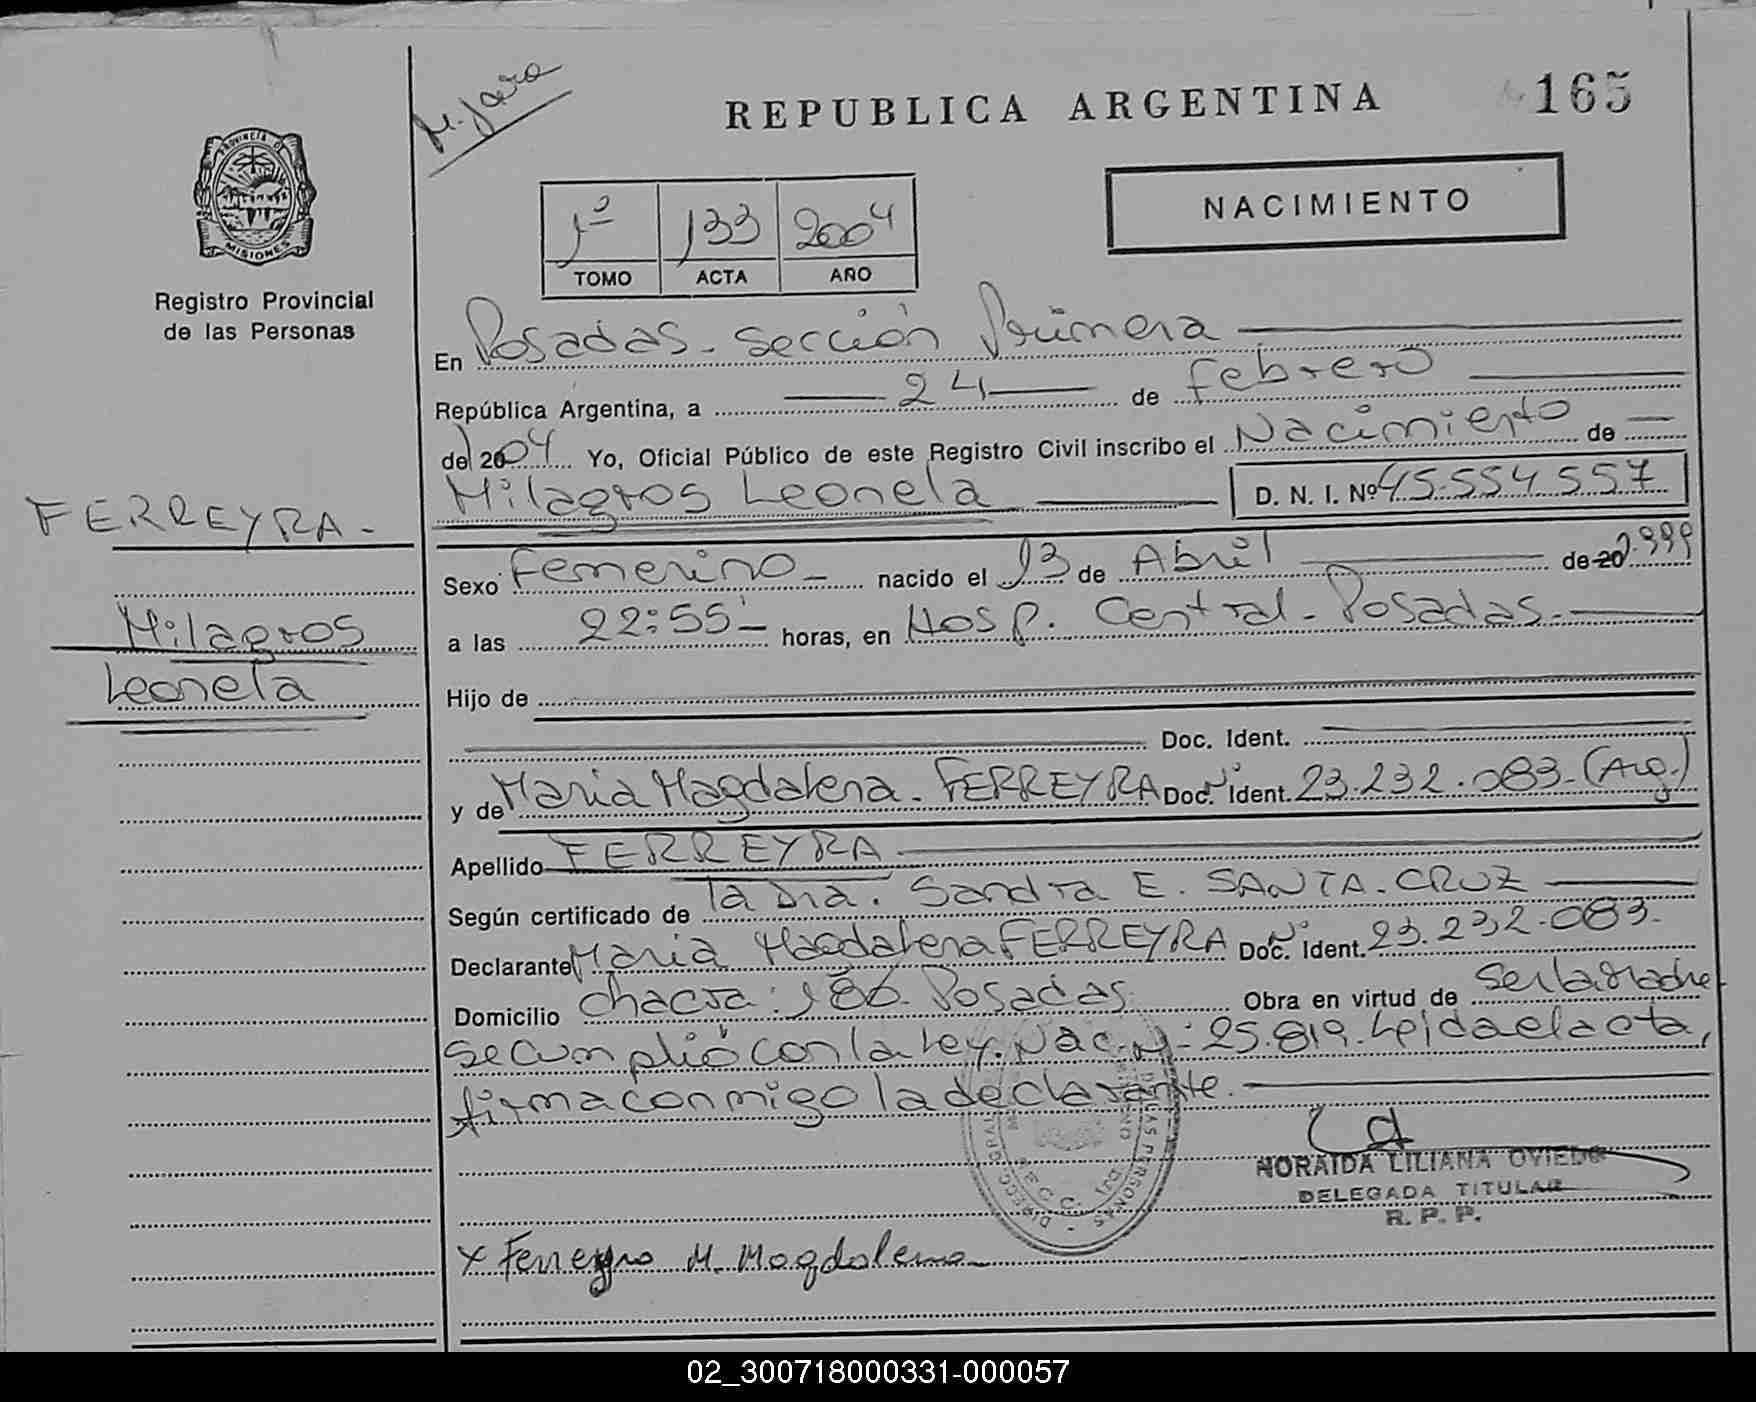 M. Jara
REPUBLICA ARGENTINA
165
PROVINCIA DE
MISIONES
Registro Provincial
de las Personas
1º 133 2004
TOMO ACTA AÑO
NACIMIENTO
En Posadas - Sección Primera
República Argentina, a 24 de Febrero
de 2004 Yo, Oficial Público de este Registro Civil inscribo el Nacimiento de
Milagros Leonela D. N. I. Nº 45.554.557
FERREYRA -
Milagros
Leonela
Sexo Femenino - nacido el 13 de Abril de 20 1.999
a las 22:55 - horas, en Hosp. Central - Posadas.
Hijo de
Doc. Ident.
y de Maria Magdalena - FERREYRA Doc. Nº Ident. 23.232.083 - (Arg.)
Apellido FERREYRA
Según certificado de la Dra. Sandra E. SANTA-CRUZ
Declarante Maria Magdalena FERREYRA Doc. Nº Ident. 23.232.083 -
Domicilio Chacra: 186 - Posadas. Obra en virtud de ser la Madre
se cumplió con la Ley. Nac. Nº: 25.819. Leida el acta,
firma conmigo la declarante.
NORAIDA LILIANA OVIEDO
DELEGADA TITULAR
R. P. P.
x Ferreyra M. Magdalena
02_300718000331-000057